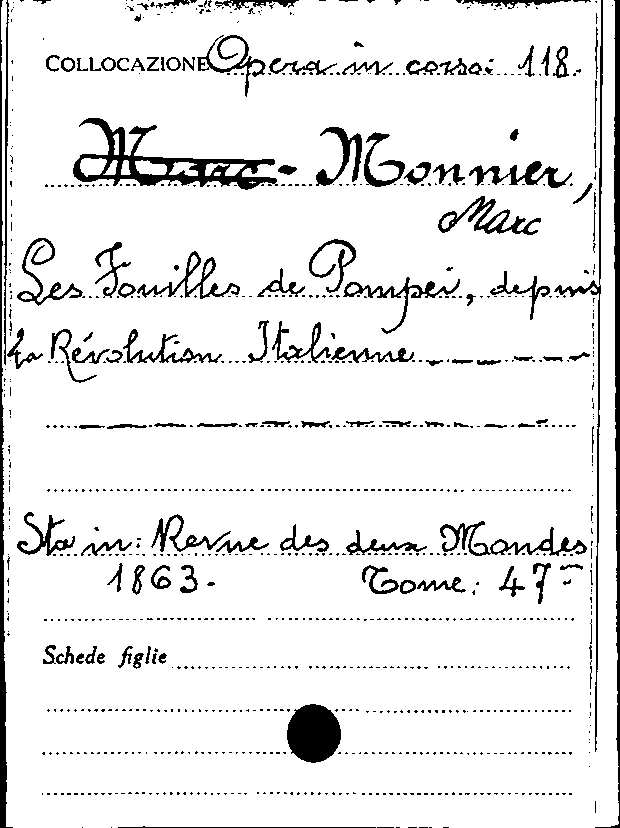 COLLOCAZIONE Opera in corso: 118.
Marc - Monnier,
Marc
Les Fouilles de Pompei, depuis
la Révolution Italienne
Sta in: Revue des deux Mondes
1863. Tome: 47
Schede figlie